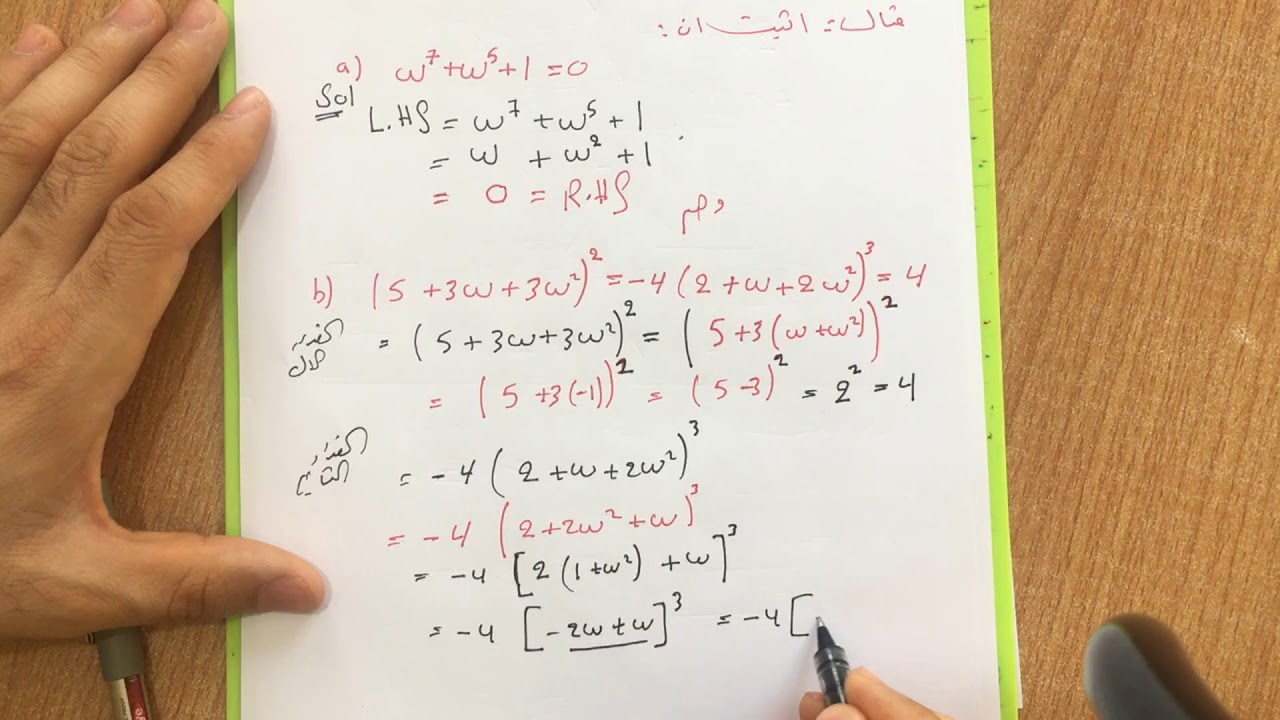 مثال: اثبت ان:
a) ω⁷+ω⁵+1=0
Sol
L.HS = ω⁷+ω⁵+1
= ω + ω² +1
= 0 = R.HS
و.هـ.م
b) (5+3ω+3ω²)²=-4(2+ω+2ω²)³=4
المقدار الاول = (5+3ω+3ω²)² = (5+3(ω+ω²))²
= (5+3(-1))² = (5-3)² = 2² = 4
المقدار الثاني = -4(2+ω+2ω²)³
= -4(2+2ω²+ω)³
= -4[2(1+ω²)+ω]³
= -4[-2ω+ω]³ = -4[